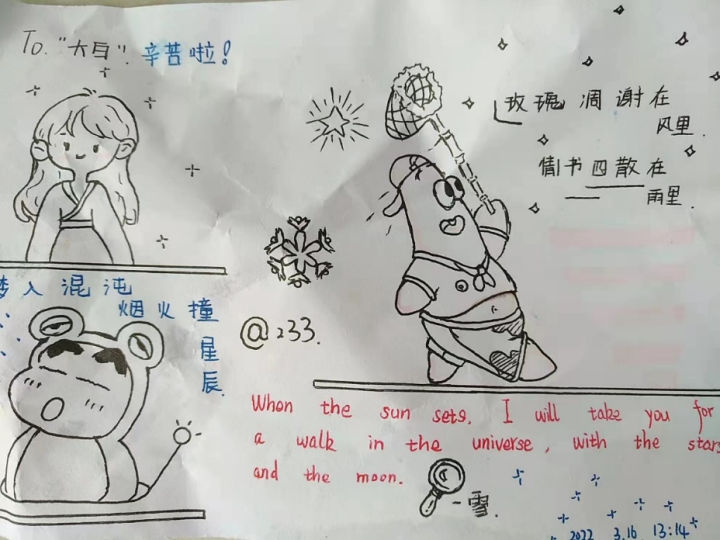 To. "大耳". 辛苦啦!
玫瑰凋谢在
风里.
情书四散在
雨里.
梦入混沌
烟火撞
星
辰.
@233.
When the sun sets, I will take you for
a walk in the universe, with the stars
and the moon.
-雪.
2022 3.16 13:14